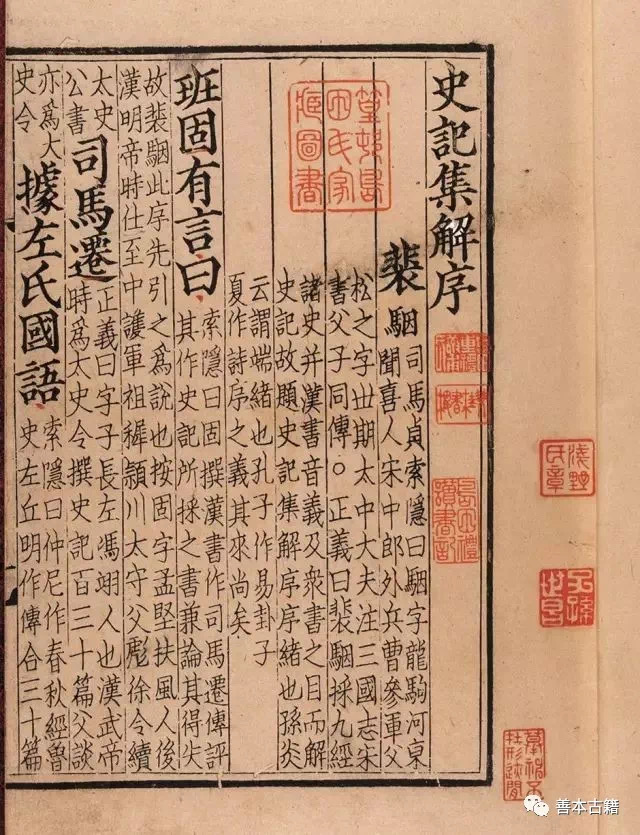 史記集解序
裴駰
司馬貞索隱曰駰字龍駒河東
聞喜人宋中郎外兵曹參軍父
松之字丗期太中大夫注三國志宋
書父子同傳○正義曰裴駰採九經
諸史并漢書音義及衆書之目而解
史記故題史記集解序序緒也孫炎
云謂端緒也孔子作易卦子
夏作詩序之義其來尚矣
班固有言曰
索隱曰固撰漢書作司馬遷傳評
其作史記所採之書兼論其得失
故裴駰此序先引之爲說也按固字孟堅扶風人後
漢明帝時仕至中護軍祖穉潁川太守父彪徐令續
太史
公書
司馬遷
正義曰字子長左馮翊人也漢武帝
時爲太史令撰史記百三十篇父談
亦爲太
史令
據左氏國語
索隱曰仲尼作春秋經魯
史左丘明作傳合三十篇
篁村島
田氏家
藏圖書
淺野
氏章
善本古籍